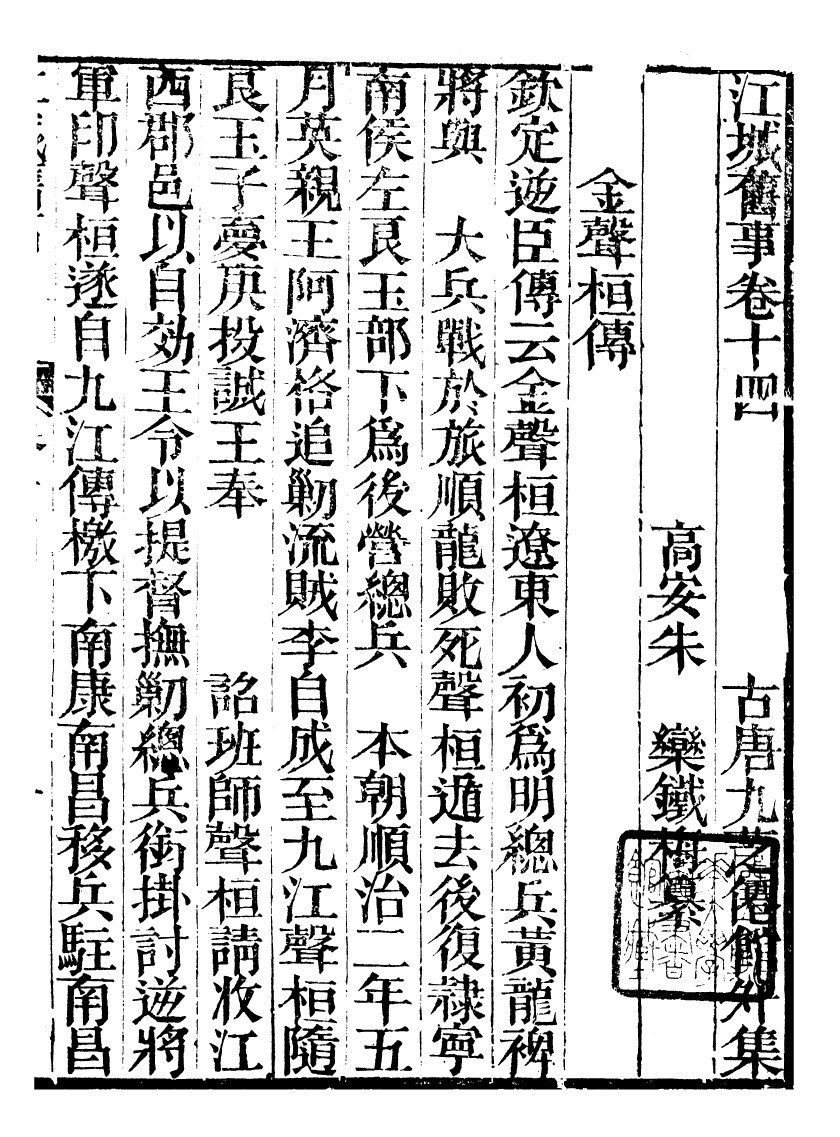 江城舊事卷十四　古唐九芝僊館外集
高安朱　欒鐵梅纂
金聲桓傳
欽定逆臣傳云金聲桓遼東人初爲明總兵黃龍裨
將與　大兵戰於旅順龍敗死聲桓遁去後復隸寧
南侯左良玉部下爲後營總兵　本朝順治二年五
月英親王阿濟格追勦流賊李自成至九江聲桓隨
良玉子夢庚投誠王奉　詔班師聲桓請收江
西郡邑以自効王令以提督撫勦總兵銜掛討逆將
軍印聲桓遂自九江傳檄下南康南昌移兵駐南昌